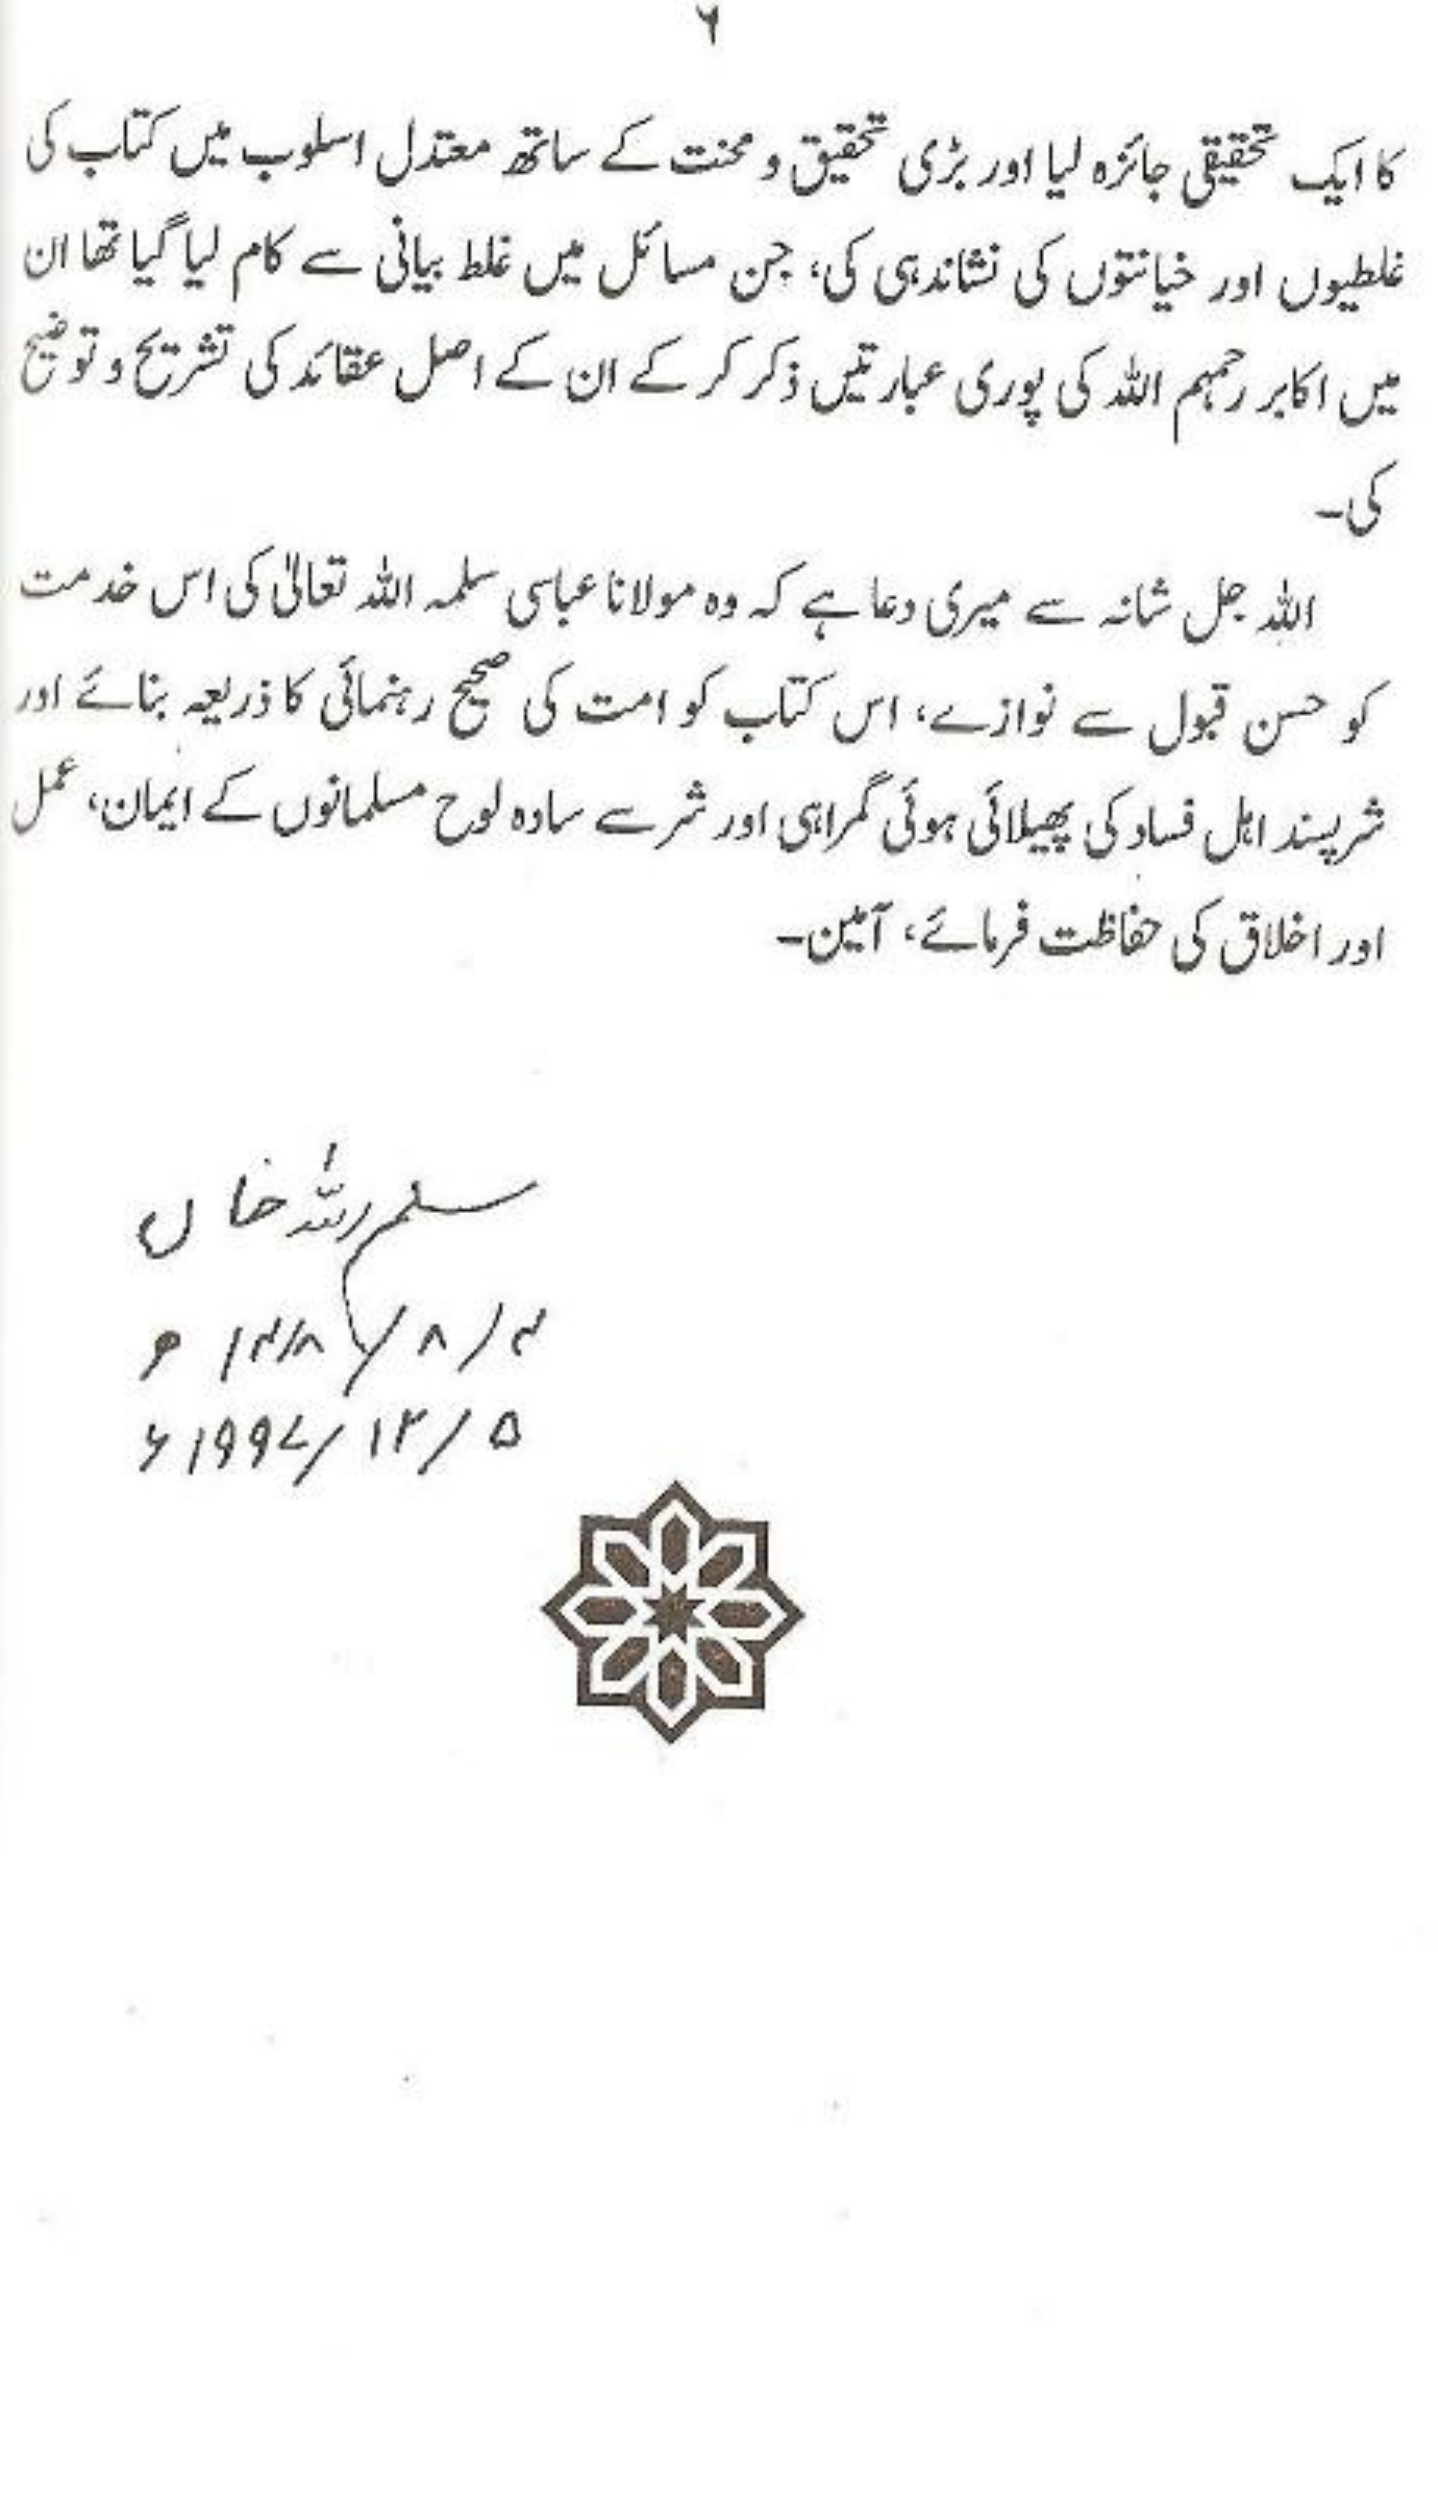 ۶
کا ایک تحقیقی جائزہ لیا اور بڑی تحقیق و محنت کے ساتھ معتدل اسلوب میں کتاب کی
غلطیوں اور خیانتوں کی نشاندہی کی، جن مسائل میں غلط بیانی سے کام لیا گیا تھا ان
میں اکابر رحمہم اللہ کی پوری عبارتیں ذکر کر کے ان کے اصل عقائد کی تشریح و توضیح
کی۔
اللہ جل شانہ سے میری دعا ہے کہ وہ مولانا عباسی سلمہ اللہ تعالیٰ کی اس خدمت
کو حسن قبول سے نوازے، اس کتاب کو امت کی صحیح رہنمائی کا ذریعہ بنائے اور
شرپسند اہل فساد کی پھیلائی ہوئی گمراہی اور شر سے سادہ لوح مسلمانوں کے ایمان، عمل
اور اخلاق کی حفاظت فرمائے، آمین۔
سلیم اللہ خاں
۴/۸/۱۴۱۸ھ
۵/۱۲/۱۹۹۷ء